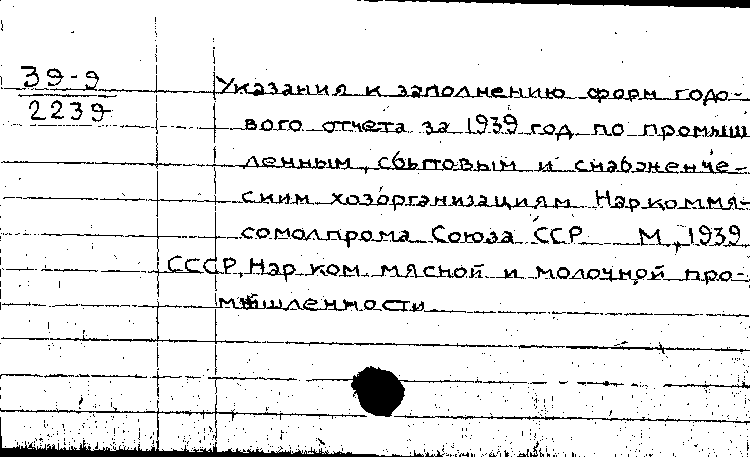 39-9
2239
Указания к заполнению форм годо-
вого отчета за 1939 год по промыш
ленным, сбытовым и снабженче-
ским хозорганизациям Наркоммя-
сомолпрома Союза ССР М, 1939
СССР. Нар ком мясной и молочной про-
мышленности